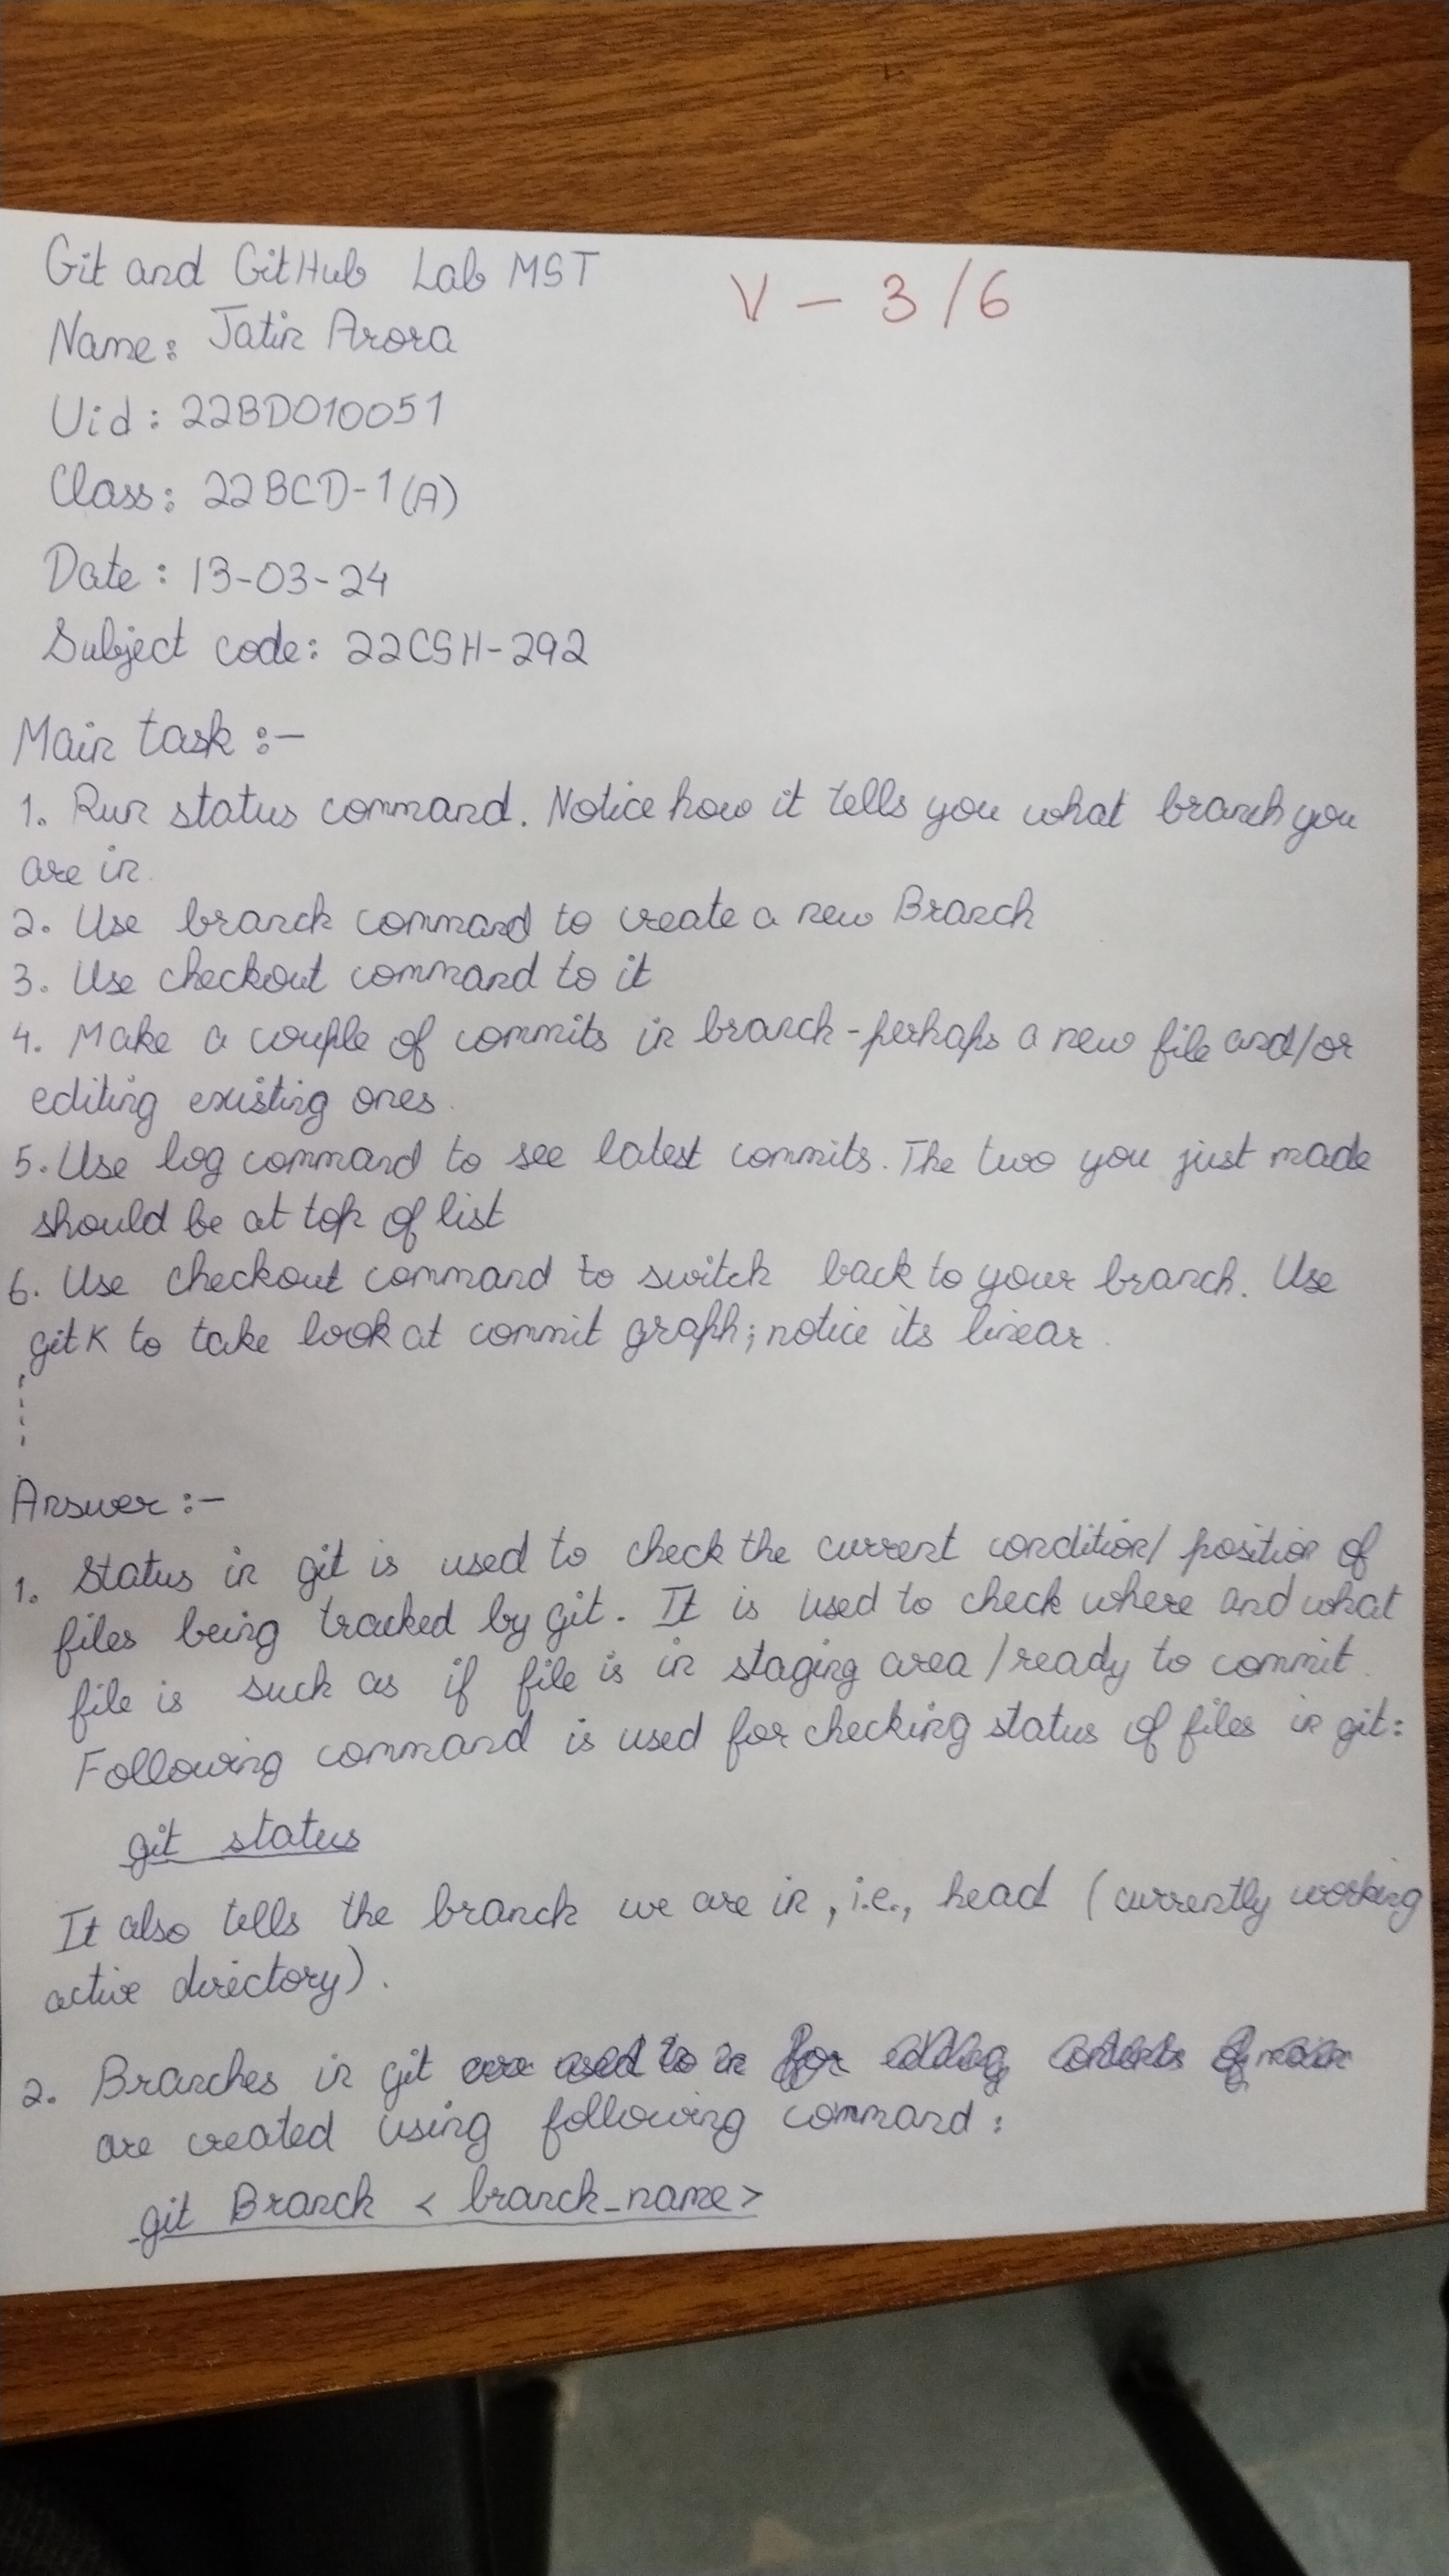 Git and GitHub Lab MST
V - 3/6
Name: Jatin Arora
Uid: 22BDO10051
Class: 22BCD-1(A)
Date: 13-03-24
Subject code: 22CSH-292
Main task :-
1. Run status command. Notice how it tells you what branch you
are in.
2. Use branch command to create a new Branch
3. Use checkout command to it
4. Make a couple of commits in branch - perhaps a new file and/or
editing existing ones.
5. Use log command to see latest commits. The two you just made
should be at top of list
6. Use checkout command to switch back to your branch. Use
gitK to take look at commit graph; notice its linear.
Answer :-
1. Status in git is used to check the current condition/ position of
files being tracked by git. It is used to check where and what
file is such as if file is in staging area /ready to commit.
Following command is used for checking status of files in git:
git status
It also tells the branch we are in, i.e., head (currently working
active directory).
2. Branches in git
are created using following command:
git Branch < branch_name>